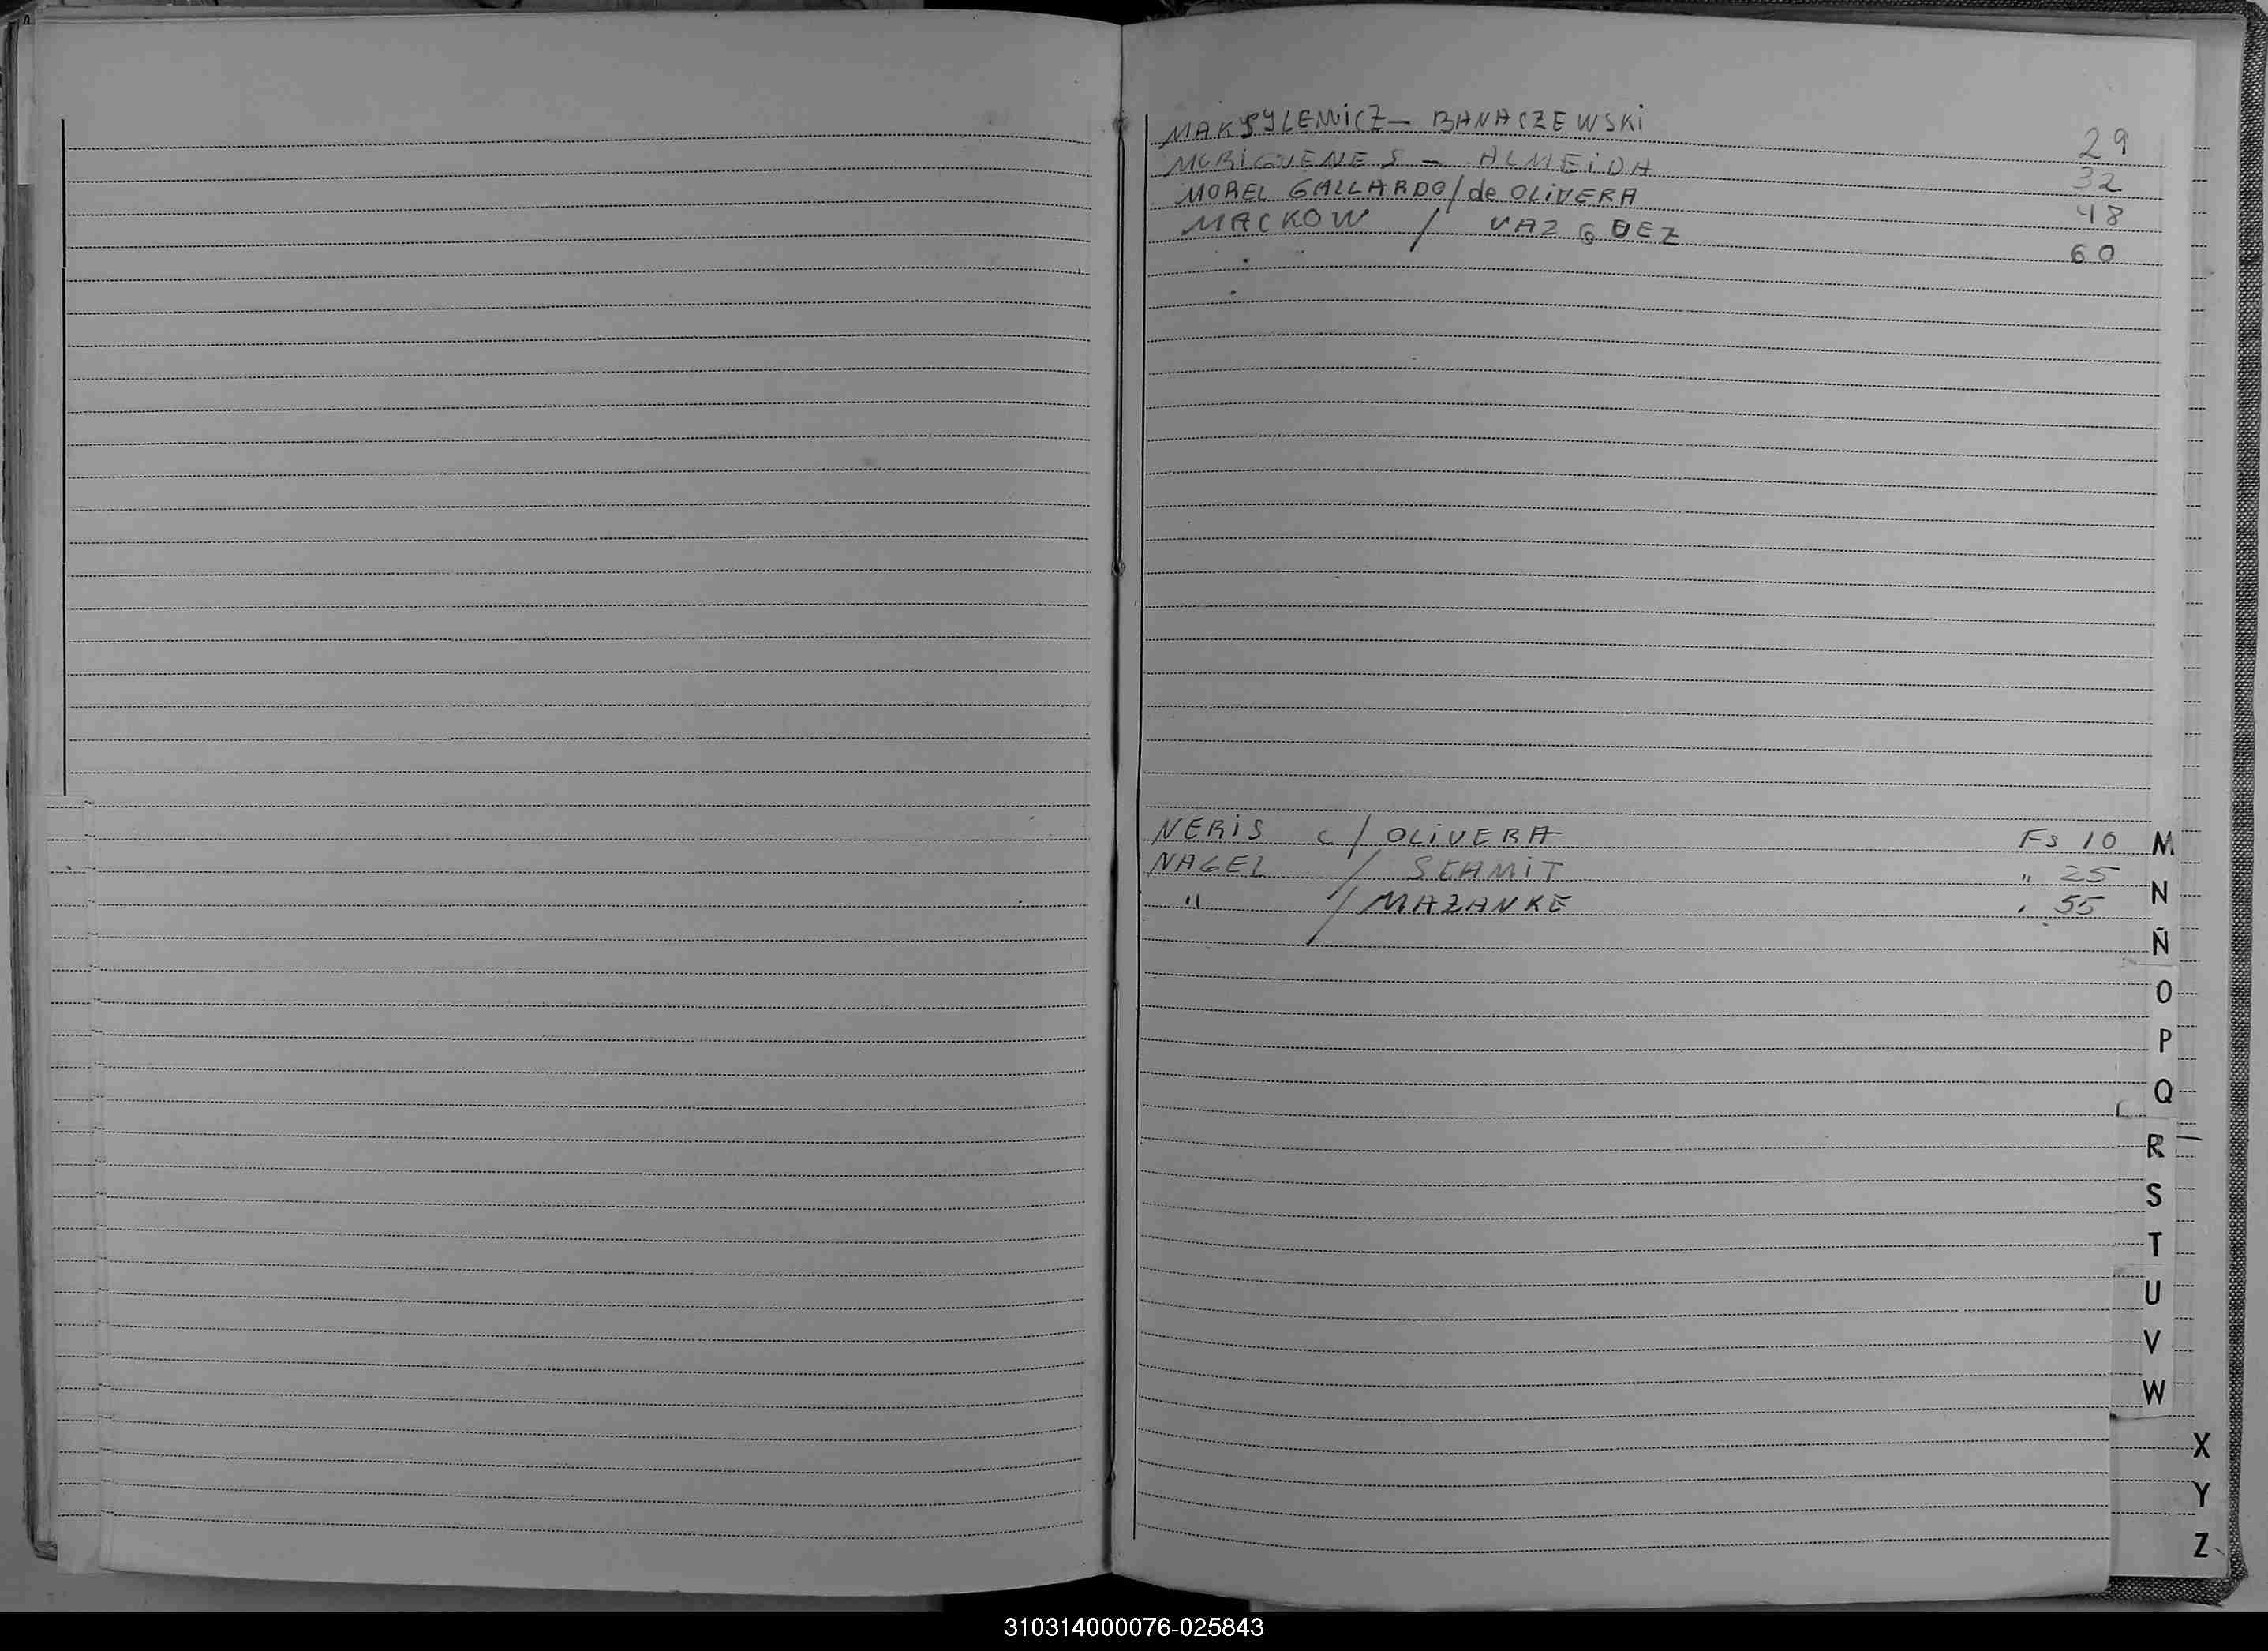 MAKSYLEWICZ - BANACZEWSKI 29
MORIGUENES - ALMEIDA 32
MOREL GALLARDO / de OLIVERA 48
MACKOW / VAZQUEZ 60
NERIS c/ OLIVERA Fs 10
NAGEL / SCHMIT " 25
" / MAZANKE " 55
M
N
Ñ
O
P
Q
R
S
T
U
V
W
X
Y
Z
310314000076-025843